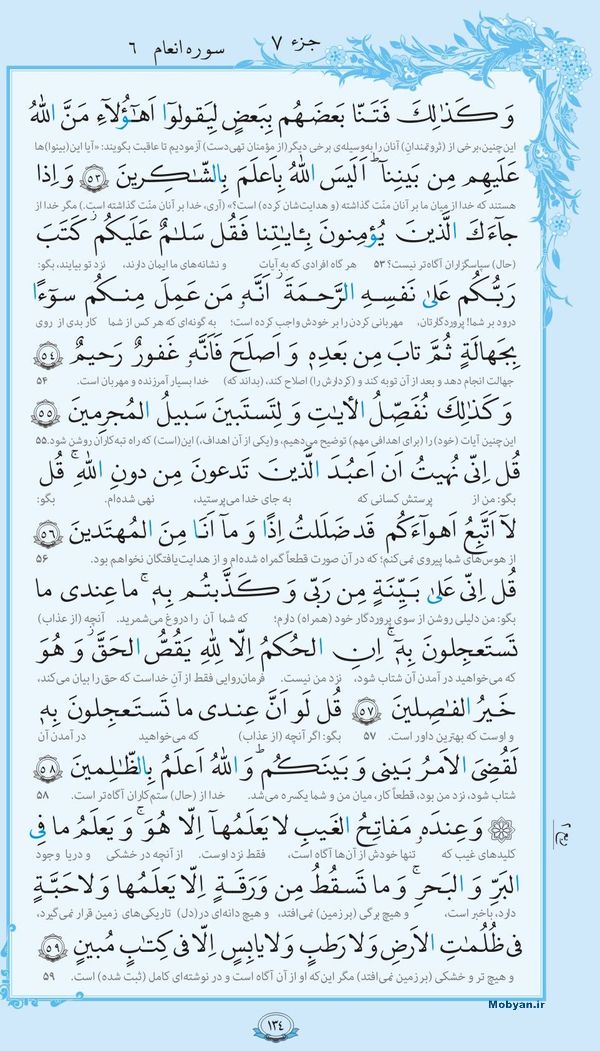 جزء ۷
سوره انعام ۶
وَ كَذٰلِكَ فَتَنّا بَعضَهُم بِبَعضٍ لِيَقولوٓا اَهٰٓؤُلآءِ مَنَّ اللهُ
این‌چنین، برخی از (ثروتمندان) آنان را به‌وسیله‌ی برخی دیگر(از مؤمنان تهی‌دست) آزمودیم تا عاقبت بگویند: «آیا این(بینوا)ها
عَلَيهِم مِن بَينِنآ ؕ اَلَيسَ اللهُ بِاَعلَمَ بِالشّٰاكِرينَ ﴿٥٣﴾ وَ اِذا
هستند که خدا از میان ما بر آنان منّت گذاشته (و هدایت‌شان کرده) است؟» (آری، خدا بر آنان منّت گذاشته.) مگر خدا از
جآءَكَ الَّذينَ يُؤمِنونَ بِـٔاياتِنا فَقُل سَلٰمٌ عَلَيكُم كَتَبَ
(حال) سپاسگزاران آگاه‌تر نیست؟ ۵۳ هر گاه افرادی که به آیات و نشانه‌های ما ایمان دارند، نزد تو بیایند، بگو:
رَبُّكُم عَلىٰ نَفسِهِ الرَّحمَةَ ۙ اَنَّهٗ مَن عَمِلَ مِنكُم سوٓءًا
درود بر شما! پروردگارتان، مهربانی کردن را بر خودش واجب کرده است؛ به گونه‌ای که هر کس از شما کار بدی از روی
بِجَهالَةٍ ثُمَّ تابَ مِن بَعدِهٖ وَ اَصلَحَ فَاَنَّهٗ غَفورٌ رَحيمٌ ﴿٥٤﴾
جهالت انجام دهد و بعد از آن توبه کند و (کردارش را) اصلاح کند، (بداند که) خدا بسیار آمرزنده و مهربان است. ۵۴
وَ كَذٰلِكَ نُفَصِّلُ الأياتِ وَ لِتَستَبينَ سَبيلُ المُجرِمينَ ﴿٥٥﴾
این‌چنین آیات (خود) را (برای اهدافی مهم) توضیح می‌دهیم، و(یکی از آن اهداف،) این(است) که راه تبه‌کاران روشن شود.۵۵
قُل اِنّى نُهيتُ اَن اَعبُدَ الَّذينَ تَدعونَ مِن دونِ اللهِ ۚ قُل
بگو: من از پرستش کسانی که به جای خدا می‌پرستید، نهی شده‌ام. بگو:
لآ اَتَّبِعُ اَهوآءَكُم ۙ قَد ضَلَلتُ اِذًا وَ مآ اَنَا مِنَ المُهتَدينَ ﴿٥٦﴾
از هوس‌های شما پیروی نمی‌کنم؛ که در آن صورت قطعاً گمراه شده‌ام و از هدایت‌یافتگان نخواهم بود. ۵۶
قُل اِنّى عَلىٰ بَيِّنَةٍ مِن رَبّى وَ كَذَّبتُم بِهٖ ۚ ما عِندى ما
بگو: من دلیلی روشن از سوی پروردگار خود (همراه) دارم؛ که شما آن را دروغ می‌شمرید. آنچه (از عذاب)
تَستَعجِلونَ بِهٖٓ ۚ اِنِ الحُكمُ اِلّا لِلّٰهِ ۖ يَقُصُّ الحَقَّ ۖ وَ هُوَ
که می‌خواهید در آمدن آن شتاب شود، نزد من نیست. فرمان‌روایی فقط از آنِ خداست که حق را بیان می‌کند،
خَيرُ الفاصِلينَ ﴿٥٧﴾ قُل لَو اَنَّ عِندى ما تَستَعجِلونَ بِهٖ
و اوست که بهترین داور است. ۵۷ بگو: اگر آنچه (از عذاب) که می‌خواهید در آمدن آن
لَقُضِىَ الاَمرُ بَينى وَ بَينَكُم ؕ وَ اللهُ اَعلَمُ بِالظّٰالِمينَ ﴿٥٨﴾
شتاب شود، نزد من بود، قطعاً کار، میان من و شما یکسره می‌شد. خدا از (حال) ستم‌کاران آگاه‌تر است. ۵۸
وَ عِندَهٗ مَفاتِحُ الغَيبِ لا يَعلَمُهآ اِلّا هُوَ ۚ وَ يَعلَمُ ما فِى
کلیدهای غیب که تنها خودش از آن‌ها آگاه است، فقط نزد اوست. از آنچه در خشکی و دریا وجود
البَرِّ وَ البَحرِ ۚ وَ ما تَسقُطُ مِن وَرَقَةٍ اِلّا يَعلَمُها وَ لا حَبَّةٍ
دارد، باخبر است، و هیچ برگی (بر زمین) نمی‌افتد، و هیچ دانه‌ای در (دل) تاریکی‌های زمین قرار نمی‌گیرد،
فى ظُلُماتِ الاَرضِ وَ لا رَطبٍ وَ لا يابِسٍ اِلّا فى كِتابٍ مُبينٍ ﴿٥٩﴾
و هیچ تر و خشکی (بر زمین نمی‌افتد) مگر این‌که او از آن آگاه است و در نوشته‌ای کامل (ثبت شده) است. ۵۹
۱۳۴
Mobyan.ir